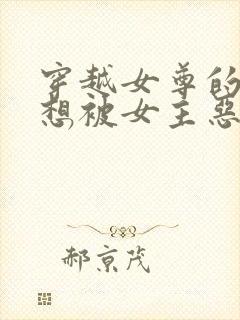 穿越女尊的
想被女主恶
郝京茂